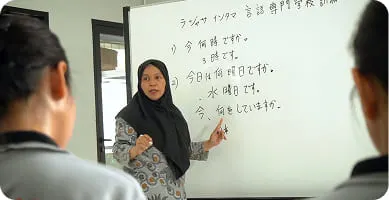 ラジャサ インタマ 言語 専門 学校
1) 今 何時 ですか。
3 時です。
2) 今日は 何曜日ですか。
水曜日です。
今、何をしていますか。